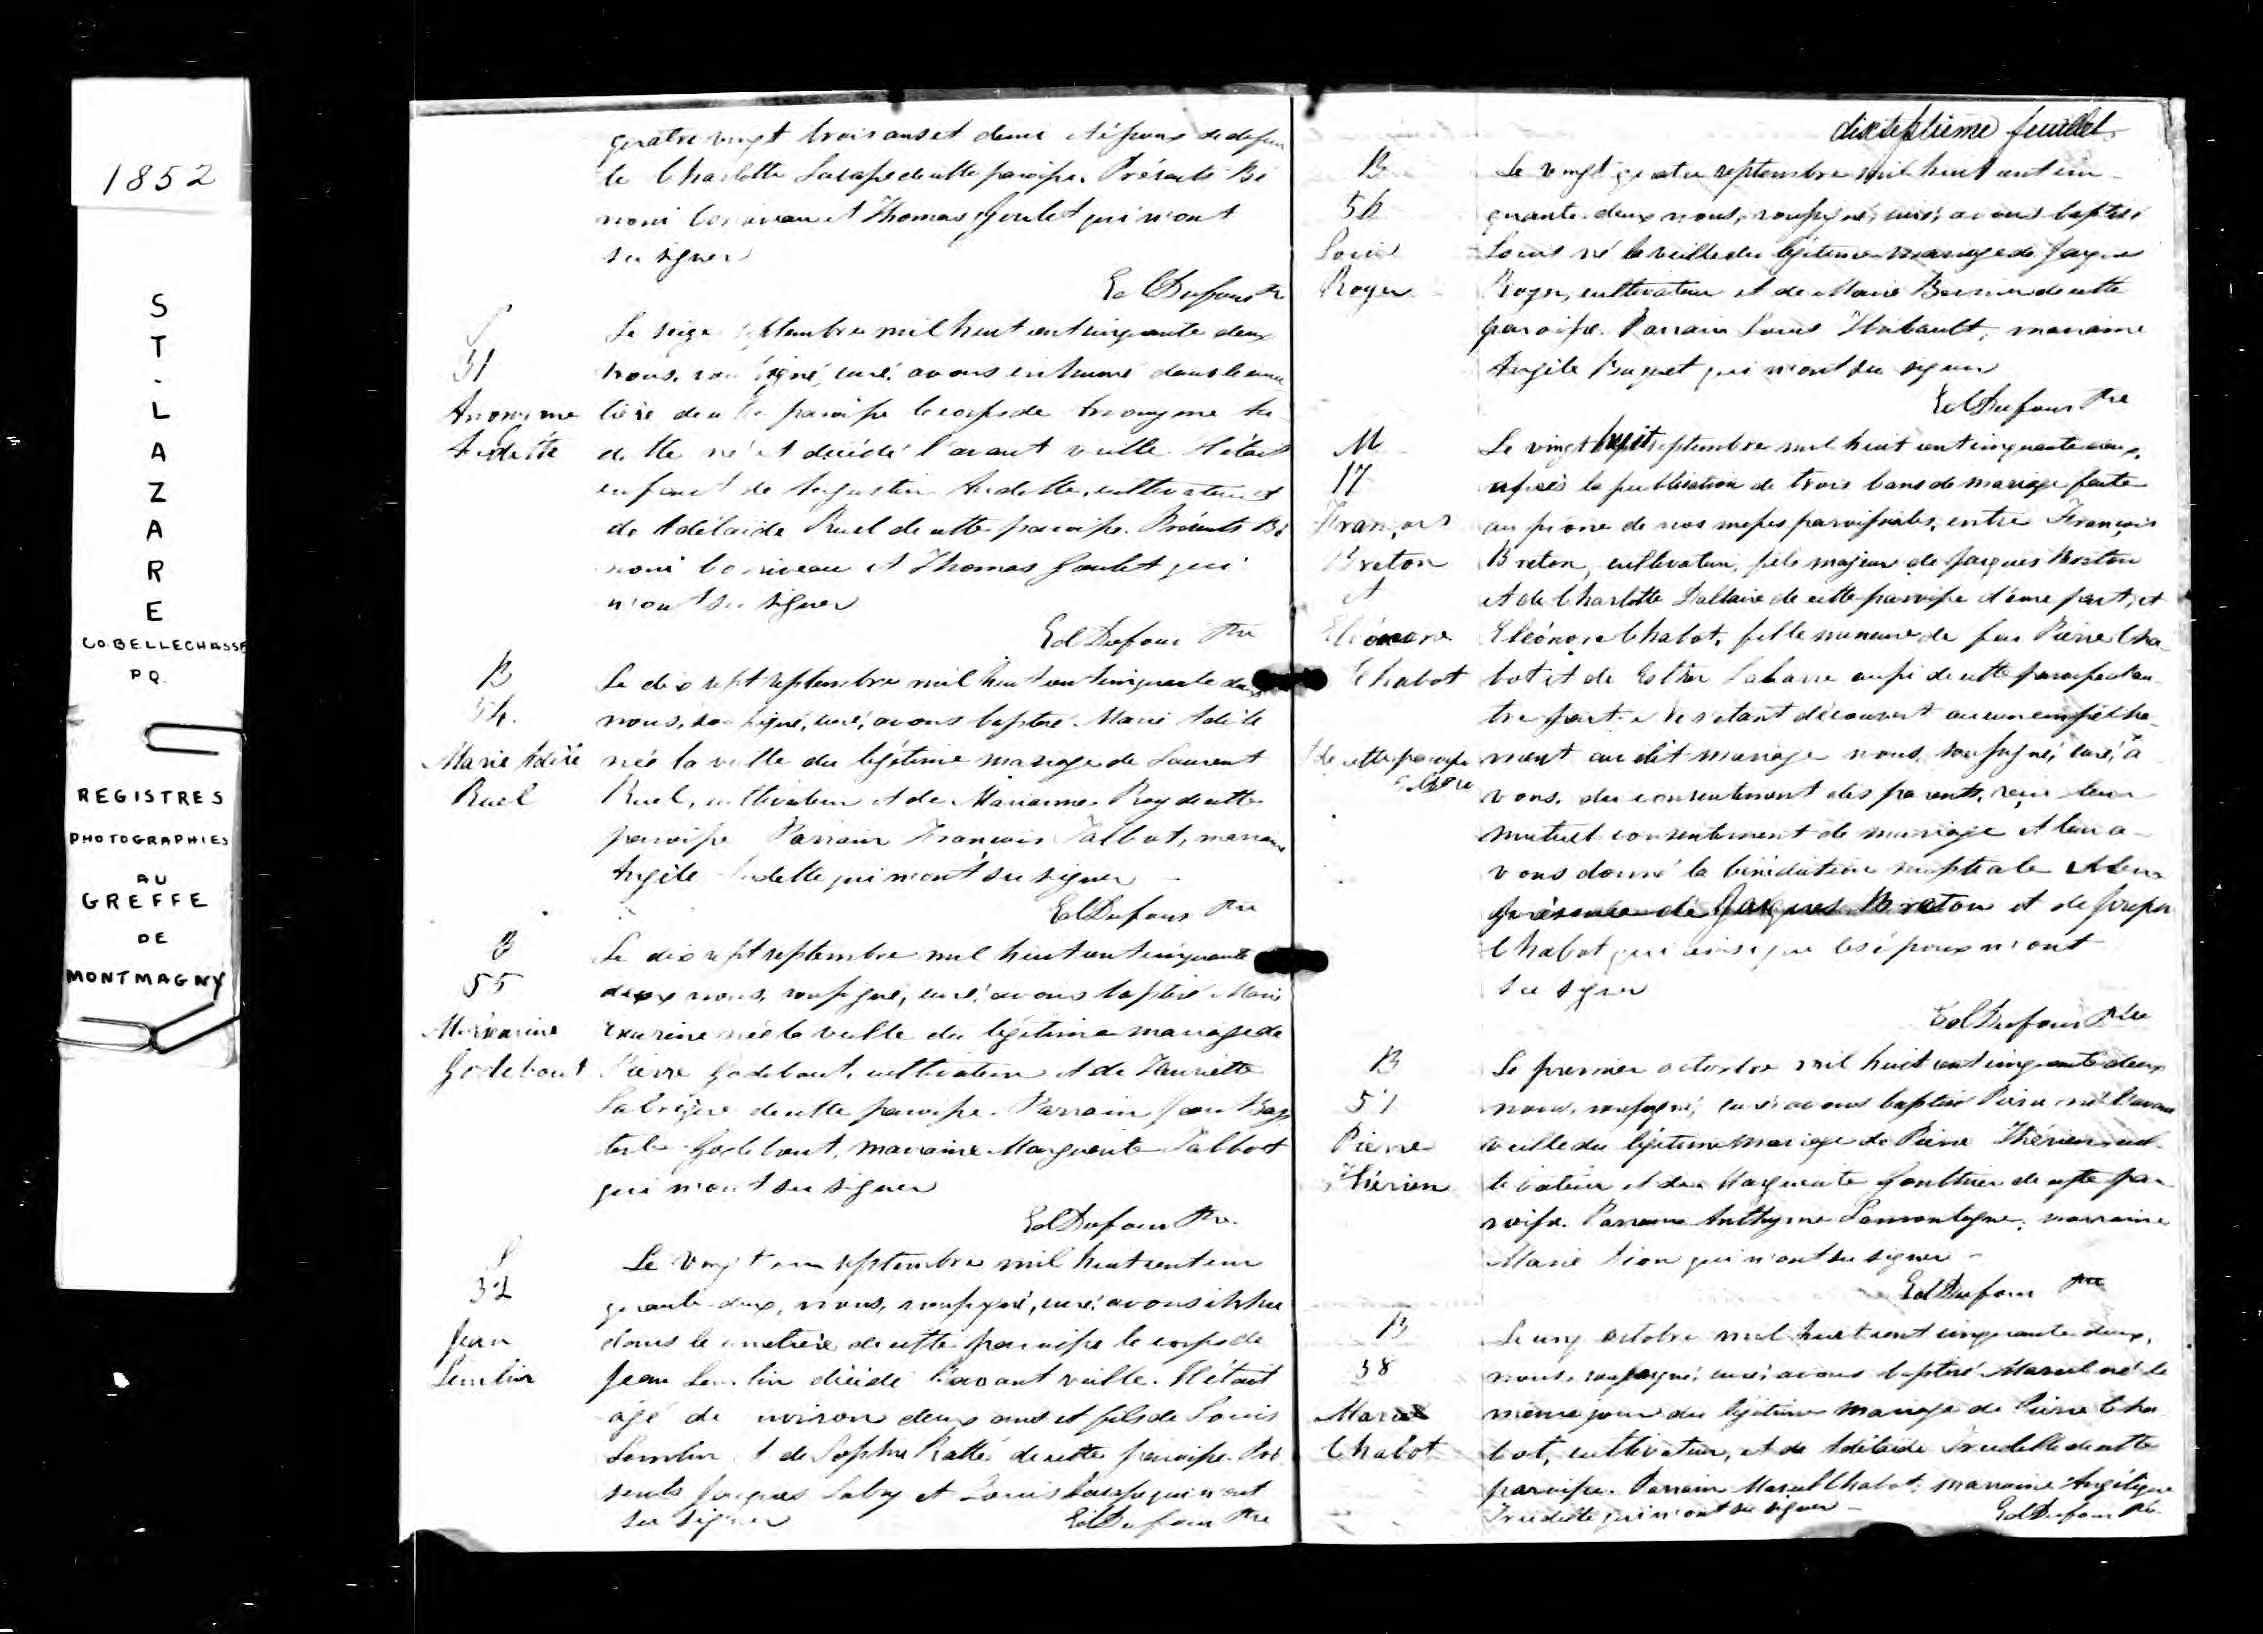 1852
ST-LAZARE
CO. BELLECHASSE
P Q.
REGISTRES
PHOTOGRAPHIES
AU
GREFFE
DE
MONTMAGNY
quatre vingt trois ans et demi et époux de defun
te Charlotte de cette paroisse. Présents Bé
noni et Thomas Goulet qui n'ont
su signer
Ed Dufour Ptre
S
31
Anonime
Audette
Le seize septembre mil huit cent cinquante deux
nous, soussigné, curé, avons inhumé dans le cime
tière de cette paroisse le corps de Anonyme Au
dette né et décédé l'avant veille. Il était
enfant de Augustin Audette, cultivateur et
de Adélaïde Ruel de cette paroisse. Présents Bé
noni et Thomas Goulet qui
n'ont su signer
Ed Dufour Ptre
B
54.
Marie Adèle
Ruel
Le dix sept septembre mil huit cent cinquante deux
nous, soussigné, curé, avons baptisé Marie Adèle
née la veille du légitime mariage de Laurent
Ruel, cultivateur et de Marianne Roy de cette
paroisse Parrain François Talbot, marraine
Angèle Audette qui n'ont su signer
Ed Dufour Ptre
B
55
Godebout
Le dix sept septembre mil huit cent cinquante
deux nous, soussigné, curé, avons baptisé Marie
née la veille du légitime mariage de
Pierre Godebout, cultivateur et de Henriette
de cette paroisse. Parrain Jean Bap
tiste Godebout, marraine Marguerite Talbot
qui n'ont su signer
Ed Dufour Ptre.
S
32
Jean
Lemlin
Le vingt un septembre mil huit cent cin
quante-deux, nous, soussigné, curé, avons inhu
dans le cimetière de cette paroisse le corps de
Jean Lemlin décédé l'avant veille. Il était
âgé de environ deux ans et fils de Louis
Lemlin et de Sophie Ratté de cette paroisse. Pré
sents Jacques et Louis qui n'ont
su signer Ed Dufour Ptre
dixseptième feuillet
B
56
Louis
Roger
Le vingt quatre septembre mil huit cent cin-
quante-deux nous, soussigné, curé, avons baptisé
Louis né la veille du légitime mariage de Jacques
Roger, cultivateur et de Marie de cette
paroisse. Parrain Louis Thibault, marraine
Angèle Buquet qui n'ont su signer
Ed Dufour Ptre
M
17
François
Breton
et
Eléonore
Chabot
Le vingt huit septembre mil huit cent cinquante deux,
après la publication de trois bans de mariage faite
au prône de nos messes paroissiales, entre François
Breton, cultivateur, fils majeur de Jacques Breton
et de Charlotte Dallaire de cette paroisse d'une part, et
Eléonore Chabot, fille mineure de feu Pierre Cha-
bot et de Esther Labarre aussi de cette paroisse d'au-
tre part; ne s'etant découvert aucun empêche-
ment au dit mariage nous, soussigné, curé, a
de cette paroisse
vons, du consentement des parents, reçu leur
mutuel consentement de mariage et leur a-
vons donné la bénédiction nuptiale
présence de Jacques Breton et de Joseph
Chabot qui ainsi que les époux n'ont
su signer
Ed Dufour Ptre
B
57
Pierre
Thérien
Le premier octobre mil huit cent cinquante deux
nous, soussigné, curé, avons baptisé Pierre né l'avant
veille du légitime mariage de Pierre Thérien cul-
tivateur et de Marguerite Gonthier de cette pa-
roisse. Parrain Anthyme Lamontagne, marraine
Marie qui n'ont su signer -
Ed Dufour Ptre
B
58
Marcel
Chabot
Le cinq octobre mil huit cent cinquante deux,
nous, soussigné, curé, avons baptisé Marcel né le
même jour du légitime mariage de Pierre Cha
bot, cultivateur, et de Adélaïde Trudelle de cette
paroisse. Parrain Marcel Chabot, marraine Angélique
Trudelle qui n'ont su signer - Ed Dufour Ptre